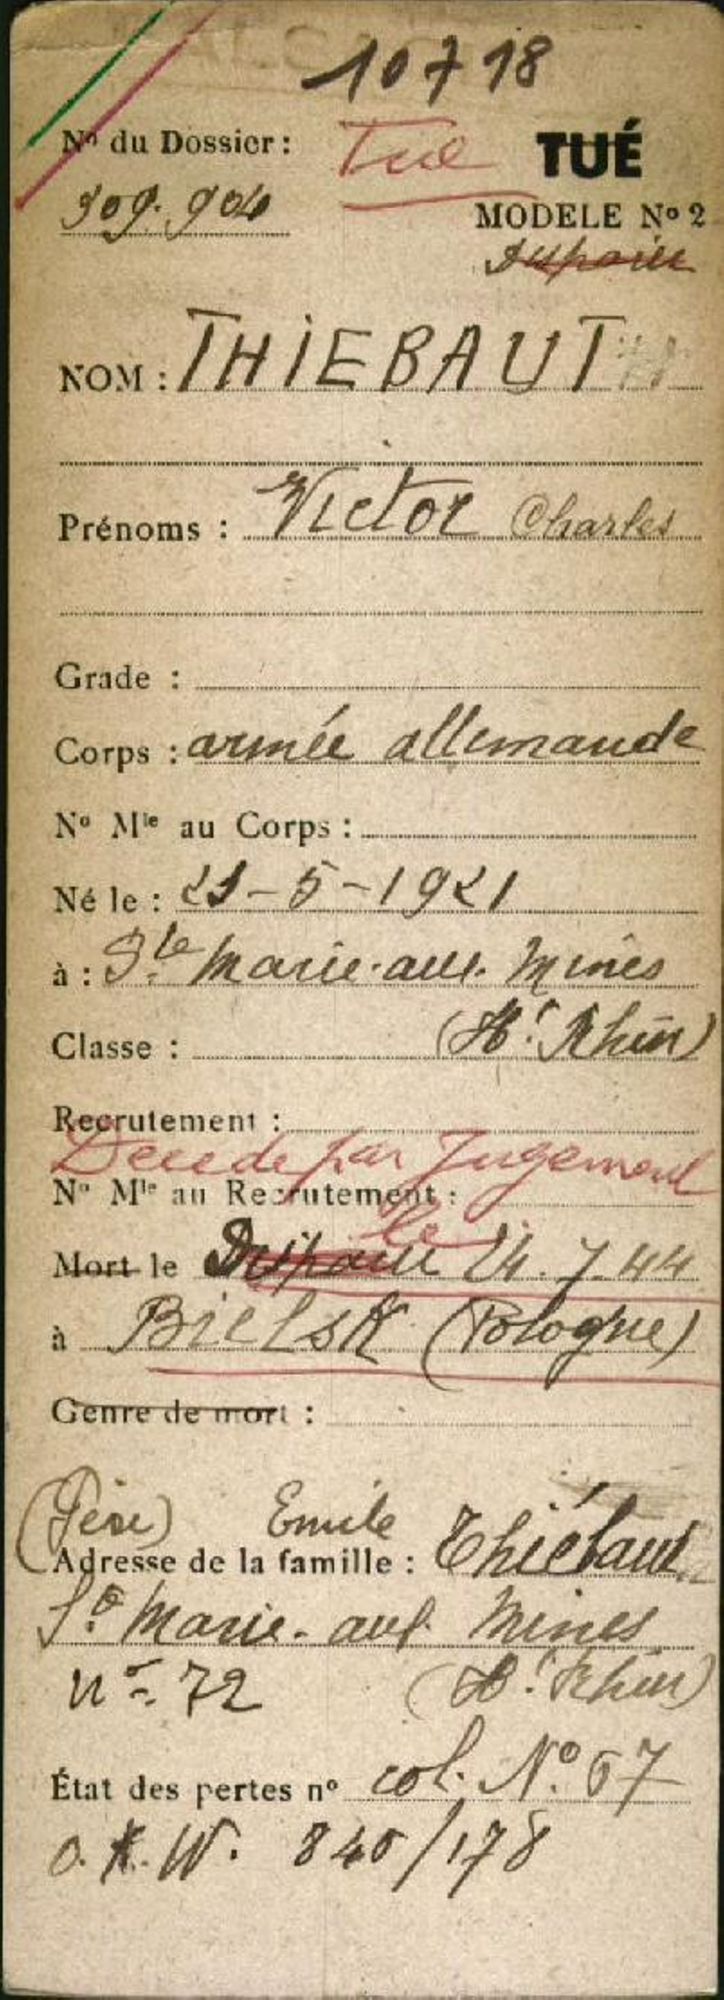 10718
Nº du Dossier : Tué TUÉ
909.904
MODELE Nº 2
Disparu
NOM : THIEBAUT
Prénoms : Victor Charles
Grade :
Corps : armée allemande
Nº Mle au Corps :
Né le : 21-5-1921
à : Ste Marie-aux-Mines
(Ht Rhin)
Classe :
Recrutement :
Décédé par Jugement
Nº Mle au Recrutement :
le
Mort le Disparu 24.7.44
à Bielsk (Pologne)
Genre de mort :
(Père) Emile
Adresse de la famille : Thiébaut
Ste Marie-aux Mines
nº 72 (Ht Rhin)
État des pertes nº col. Nº 67
O.K.W. 840/178